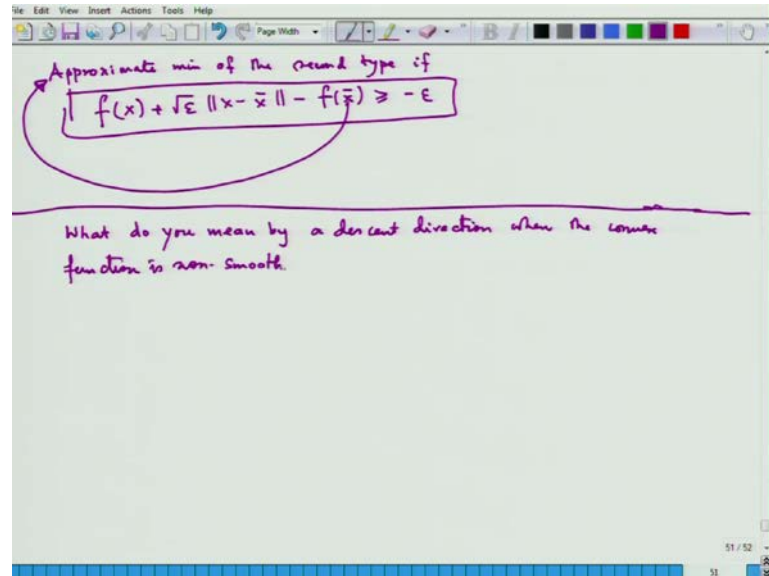 File Edit View Insert Actions Tools Help
Page Width
B I
Approximate min of the second type if
f(x) + √ε ||x - x̄|| - f(x̄) ≥ - ε
What do you mean by a descent direction when the convex
function is non-smooth.
51 / 52
51